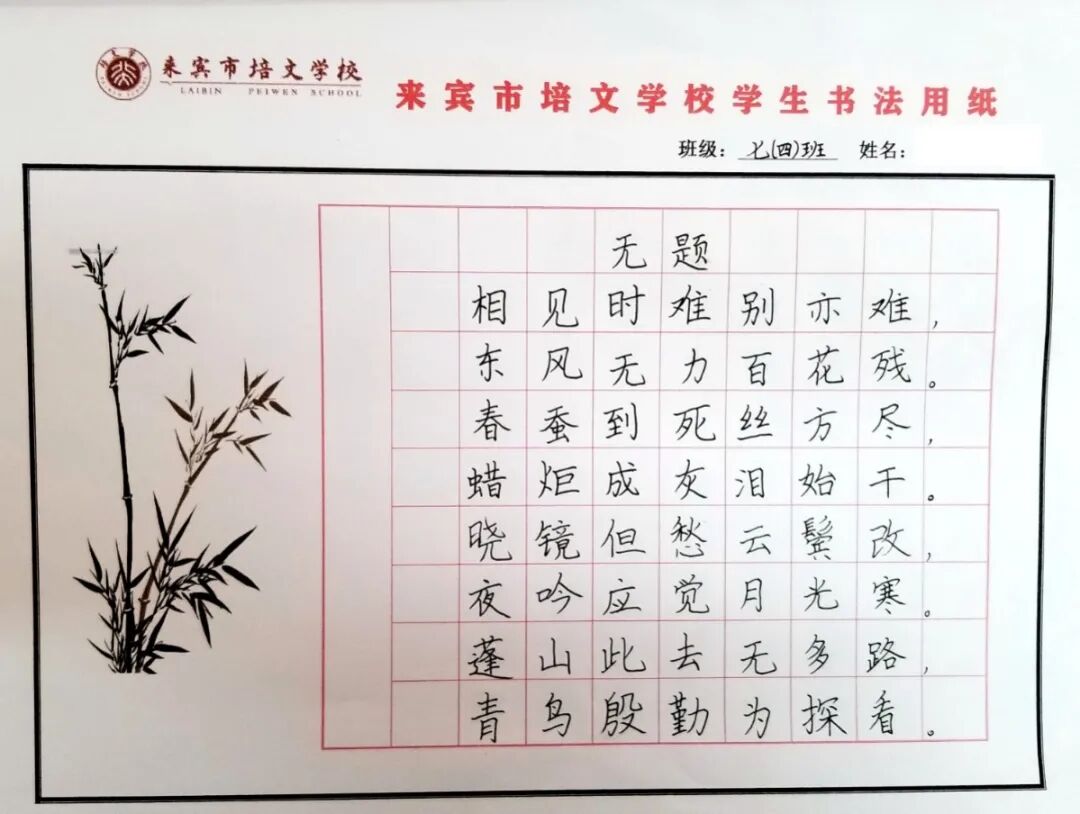 来宾市培文学校
LAIBIN PEIWEN SCHOOL
来宾市培文学校学生书法用纸
班级：七(四)班 姓名：
无题
相见时难别亦难，
东风无力百花残。
春蚕到死丝方尽，
蜡炬成灰泪始干。
晓镜但愁云鬓改，
夜吟应觉月光寒。
蓬山此去无多路，
青鸟殷勤为探看。